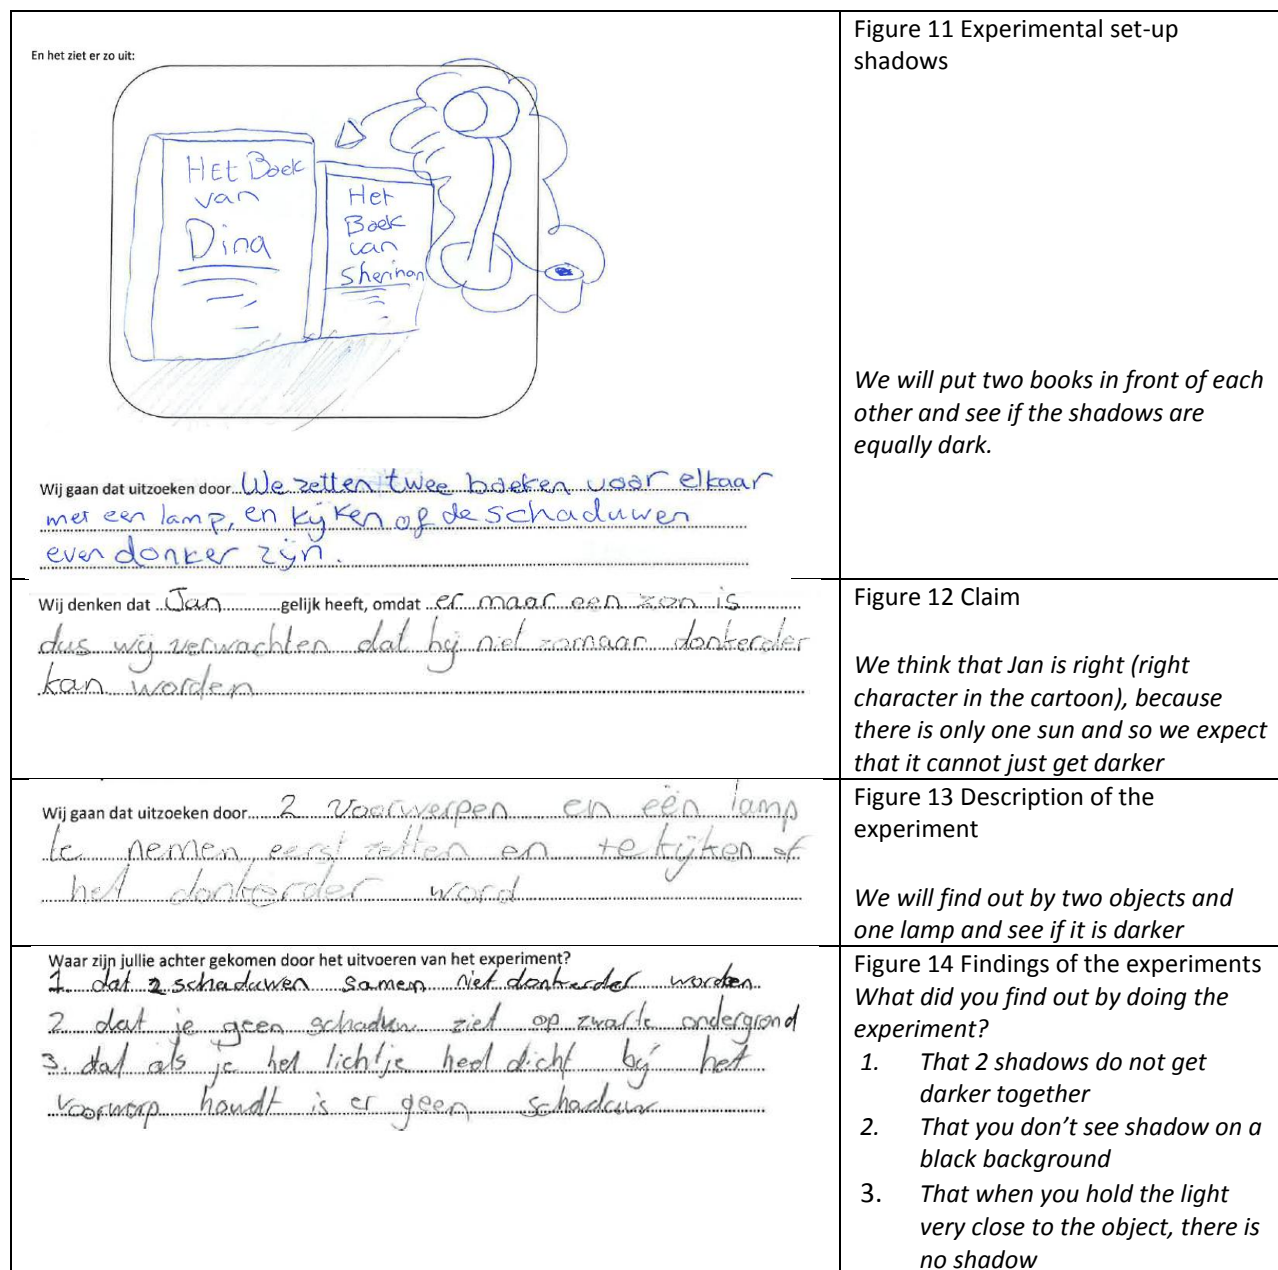 En het ziet er zo uit:
HEt Boek
van
Dina
Het
Boek
van
Sherihan
Wij gaan dat uitzoeken door We zetten twee boeken voor elkaar
met een lamp, en kijken of de schaduwen
even donker zijn.
Figure 11 Experimental set-up
shadows
We will put two books in front of each
other and see if the shadows are
equally dark.
Wij denken dat Jan gelijk heeft, omdat er maar een zon is
dus wij verwachten dat hij niet zomaar donkerder
kan worden
Figure 12 Claim
We think that Jan is right (right
character in the cartoon), because
there is only one sun and so we expect
that it cannot just get darker
Wij gaan dat uitzoeken door 2 voorwerpen en één lamp
te nemen eerst zetten en te kijken of
het donkerder word
Figure 13 Description of the
experiment
We will find out by two objects and
one lamp and see if it is darker
Waar zijn jullie achter gekomen door het uitvoeren van het experiment?
1. dat 2 schaduwen samen niet donkerder worden
2 dat je geen schaduw ziet op zwarte ondergrond
3. dat als je het lichtje heel dicht bij het
voorwerp houdt is er geen schaduw
Figure 14 Findings of the experiments
What did you find out by doing the
experiment?
1. That 2 shadows do not get
darker together
2. That you don't see shadow on a
black background
3. That when you hold the light
very close to the object, there is
no shadow